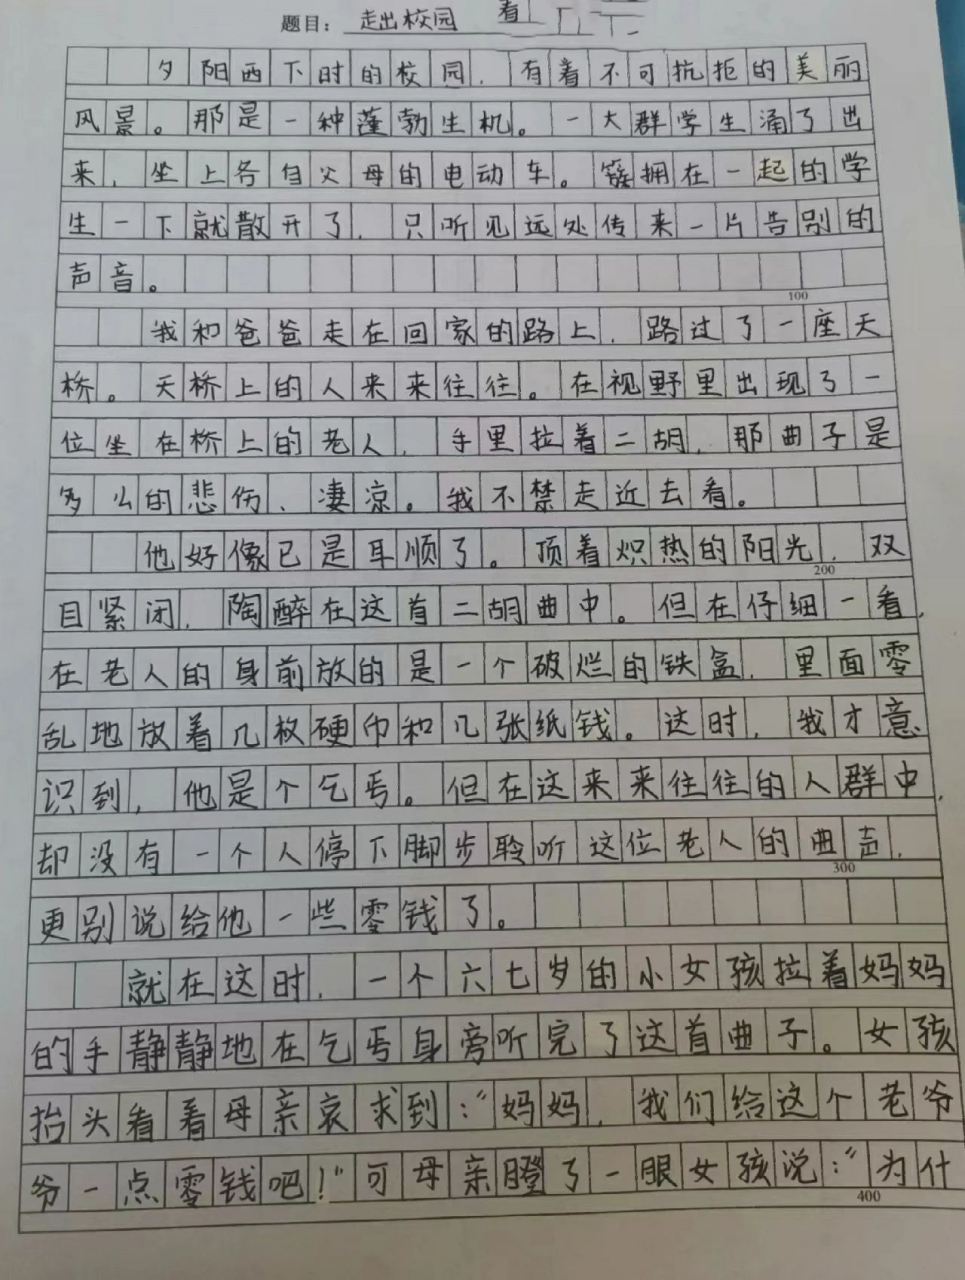 题目：走出校园 看
夕阳西下时的校园，有着不可抗拒的美丽
风景。那是一种蓬勃生机。一大群学生涌了出
来，坐上各自父母的电动车。簇拥在一起的学
生一下就散开了，只听见远处传来一片告别的
声音。
100
我和爸爸走在回家的路上，路过了一座天
桥。天桥上的人来来往往。在视野里出现了一
位坐在桥上的老人，手里拉着二胡，那曲子是
多么的悲伤、凄凉。我不禁走近去看。
他好像已是耳顺了。顶着炽热的阳光，双
200
目紧闭，陶醉在这首二胡曲中。但在仔细一看，
在老人的身前放的是一个破烂的铁盒，里面零
乱地放着几枚硬币和几张纸钱。这时，我才意
识到，他是个乞丐。但在这来来往往的人群中，
却没有一个人停下脚步聆听这位老人的曲声，
300
更别说给他一些零钱了。
就在这时，一个六七岁的小女孩拉着妈妈
的手静静地在乞丐身旁听完了这首曲子。女孩
抬头看看母亲哀求到：“妈妈，我们给这个老爷
爷一点零钱吧！”可母亲瞪了一眼女孩说：“为什
400